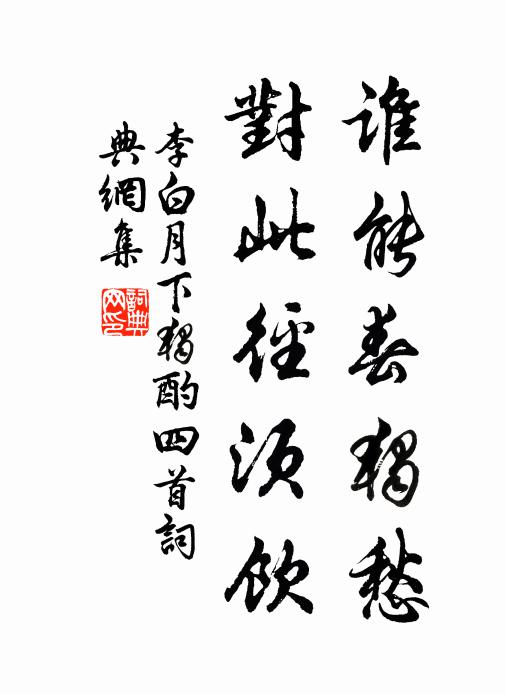 誰能春獨愁
對此徑須飲
李白月下獨酌四首詞
典網集
詞典
網印